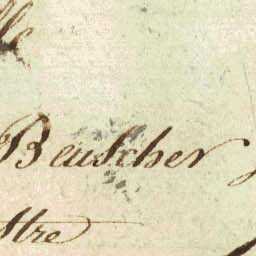 lle
Beuscher
stre